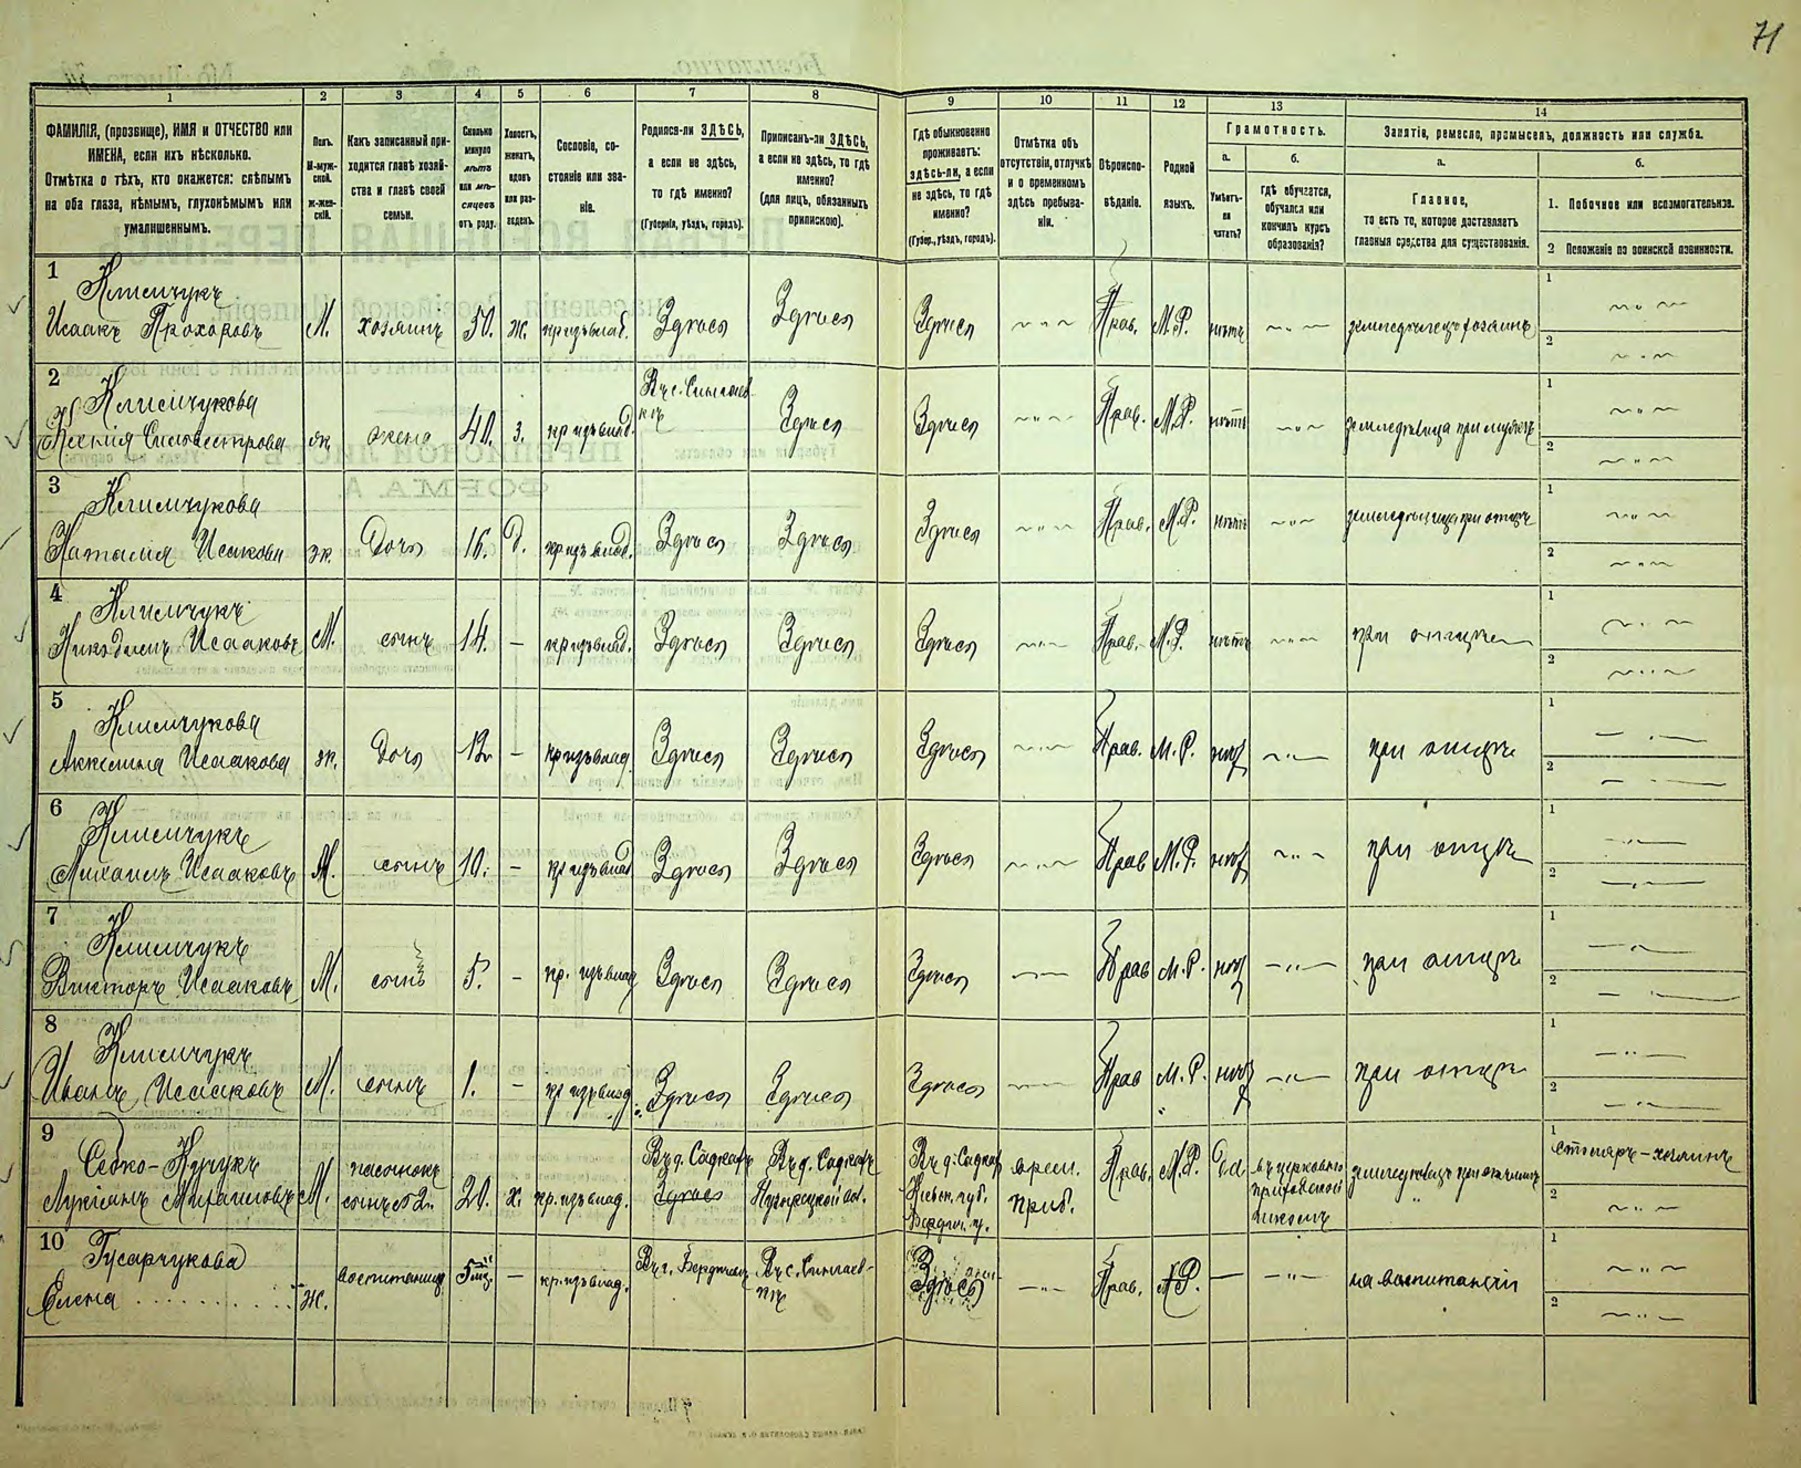 71
1
2
3
4
5
6
7
8
9
10
11
12
13
14
ФАМИЛІЯ, (прозвище), ИМЯ и ОТЧЕСТВО или
ИМЕНА, если ихъ нѣсколько.
Отмѣтка о тѣхъ, кто окажется: слѣпымъ
на оба глаза, нѣмымъ, глухонѣмымъ или
умалишеннымъ.
Полъ.
М-муж-
ской.
Ж-жен-
скій.
Какъ записанный при-
ходится главѣ хозяй-
ства и главѣ своей
семьи.
Сколько
минуло
лѣтъ
или мѣ-
сяцевъ
отъ роду.
Холостъ,
женатъ,
вдовъ
или раз-
веденъ.
Сословіе, со-
стояніе или зва-
ніе.
Родился-ли ЗДѢСЬ,
а если не здѣсь,
то гдѣ именно?
(Губернія, уѣздъ, городъ).
Приписанъ-ли ЗДѢСЬ,
а если не здѣсь, то гдѣ
именно?
(для лицъ, обязанныхъ
припискою).
Гдѣ обыкновенно
проживаетъ:
здѣсь-ли, а если
не здѣсь, то гдѣ
именно?
(Губер., уѣздъ, городъ).
Отмѣтка объ
отсутствіи, отлучкѣ
и о временномъ
здѣсь пребыва-
ніи.
Вѣроиспо-
вѣданіе.
Родной
языкъ.
Грамотность.
а.
Умѣетъ-
ли
читать?
б.
гдѣ обучается,
обучался или
кончилъ курсъ
образованія?
Занятіе, ремесло, промыселъ, должность или служба.
а.
Главное,
то есть то, которое доставляетъ
главныя средства для существованія.
б.
1. Побочное или вспомогательное.
2 Положеніе по воинской повинности.
1
Климчукъ
Исаакъ Прохоровъ
М. хозяинъ 50. ж. кр. изъ влад. Здѣсь Здѣсь Здѣсь Прав. М.Р. нѣтъ земледѣлецъ хозяинъ
1
2
2
Климчукова
Ксенія Сильвестрова
ж жена 40. з. кр. изъ влад. Здѣсь Здѣсь Прав. М.Р. нѣтъ земледѣлица при мужѣ
1
2
3
Климчукова
Наталія Исакова
ж. дочь 16. д. кр. изъ влад. Здѣсь Здѣсь Здѣсь Прав. М.Р. нѣтъ земледѣлица при отцѣ
1
2
4
Климчукъ
Никодимъ Исааковъ
М. сынъ 14. – кр. изъ влад. Здѣсь Здѣсь Здѣсь Прав. М.Р. нѣтъ при отцѣ
1
2
5
Климчукова
Акилина Исаакова
ж. дочь 12 – кр. изъ влад. Здѣсь Здѣсь Здѣсь Прав. М.Р. при отцѣ
1
2
6
Климчукъ
Михаилъ Исааковъ
М. сынъ 10. – кр. изъ влад Здѣсь Здѣсь Здѣсь Прав М.Р. при отцѣ
1
2
7
Климчукъ
Викторъ Исааковъ
М. сынъ 5. – кр. изъ влад Здѣсь Здѣсь Здѣсь Прав М.Р. при отцѣ
1
2
8
Климчукъ
Иванъ Исааковъ
М. сынъ 1. – кр. изъ влад Здѣсь Здѣсь Здѣсь Прав М.Р. при отцѣ
1
2
9
М. пасынокъ
20. х. кр. изъ влад.
Здѣсь
Кіевск. губ.
Бердич. у.
врем.
приб.
Прав. М.Р. Да
въ церковно
приходской
школѣ
земледѣлецъ при отчимѣ
1
2
10
Гусарчукова
Елена
ж. воспитанница 5 мѣс. – кр. изъ влад. Въ г. Бердичевѣ
Здѣсь Прав. М.Р. – на воспитаніи
1
2